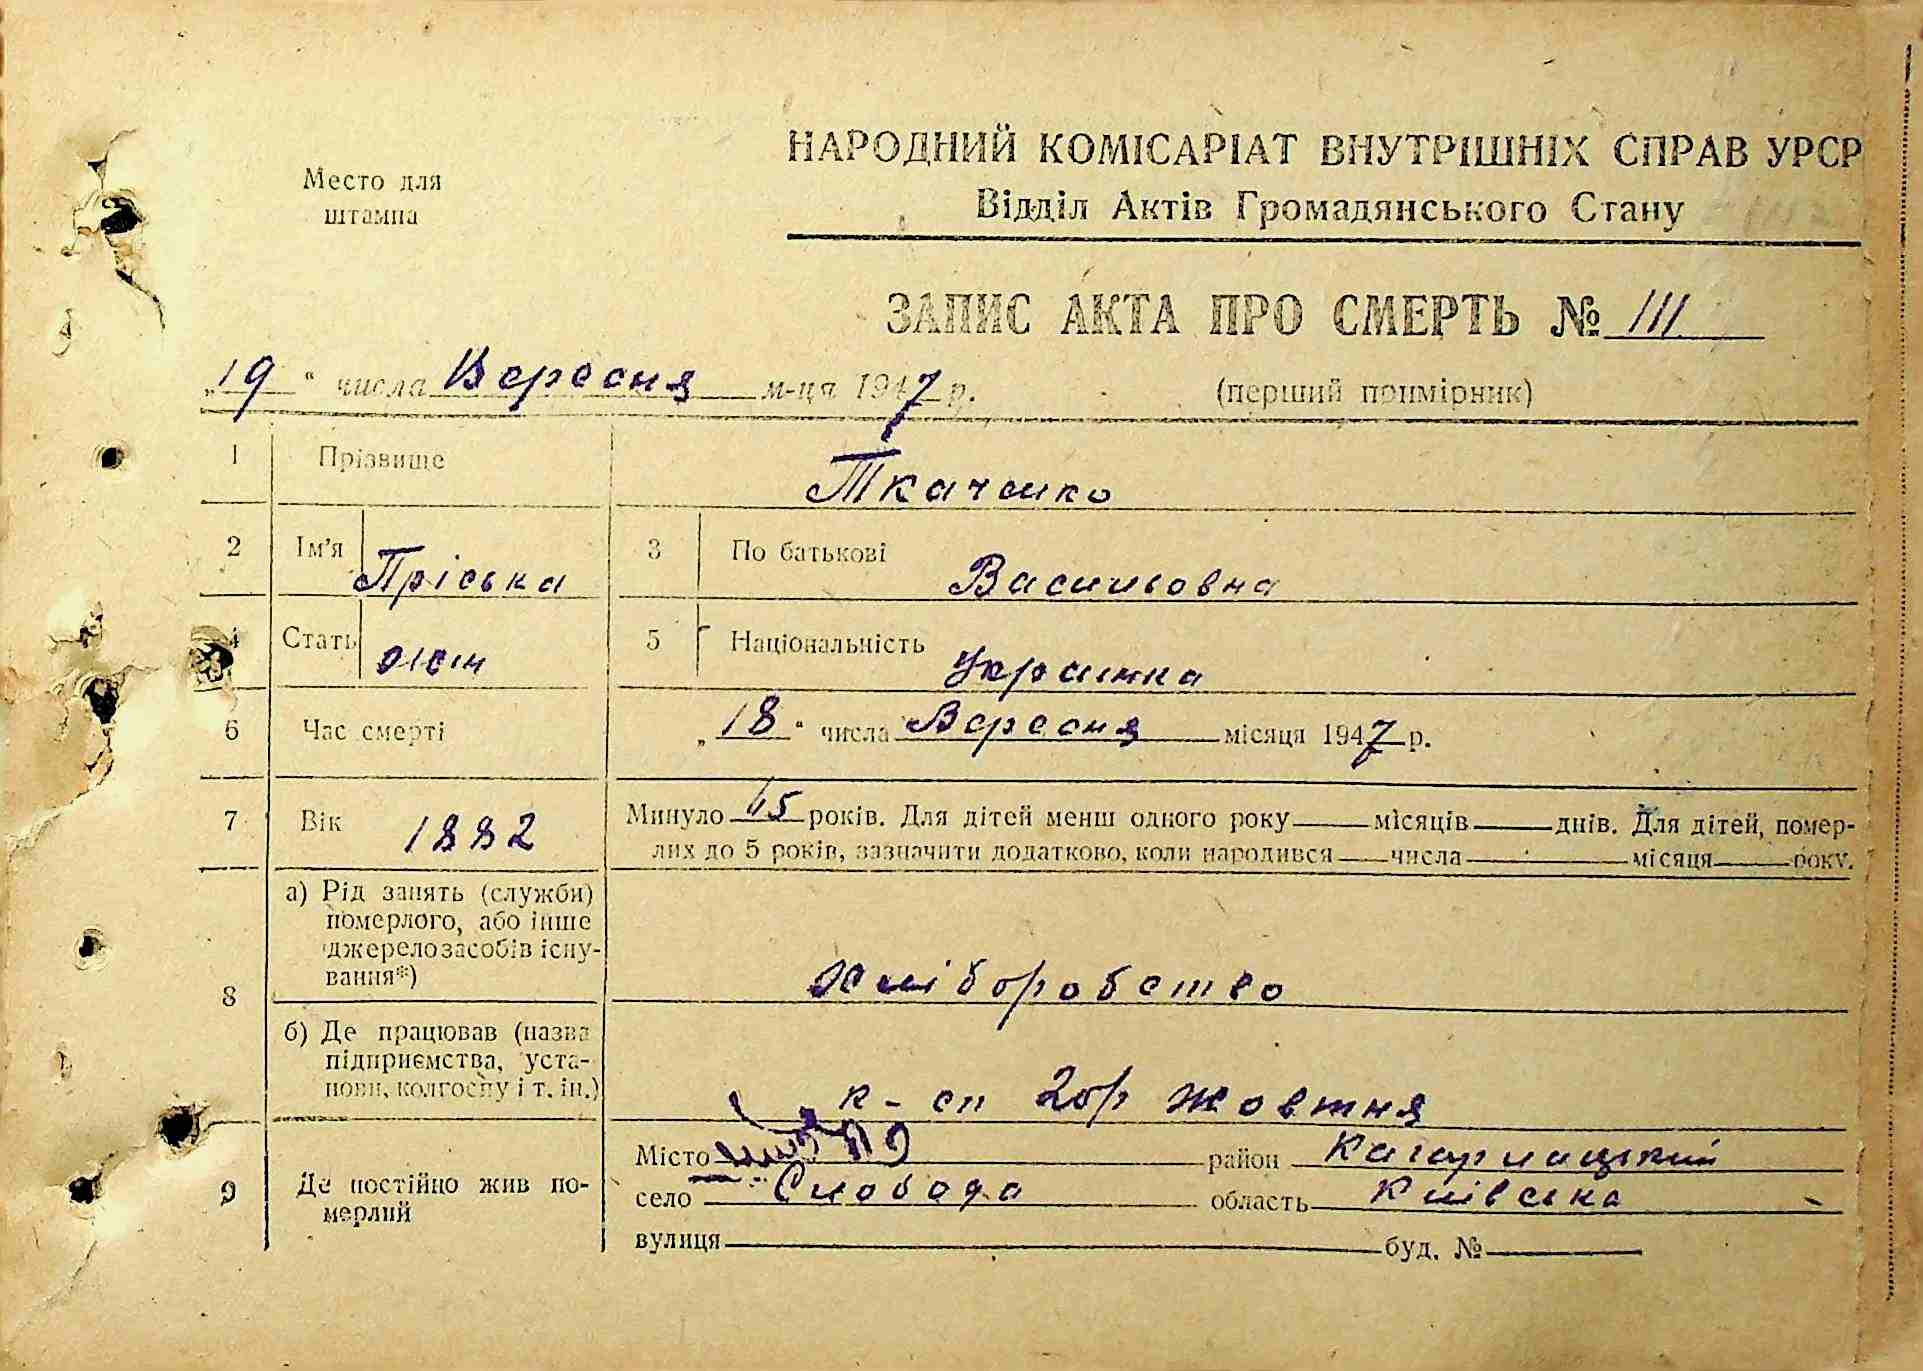 Место для
штампа
НАРОДНИЙ КОМІСАРІАТ ВНУТРІШНІХ СПРАВ УРСР
Відділ Актів Громадянського Стану
ЗАПИС АКТА ПРО СМЕРТЬ № 111
„19“ числа Вересня м-ця 1947 р. (перший примірник)
1 Прізвище Ткаченко
2 Ім'я Пріська 3 По батькові Васильовна
4 Стать жін 5 Національність Украинка
6 Час смерті „18“ числа Вересня місяця 1947 р.
7 Вік 1882 Минуло 65 років. Для дітей менш одного року місяців днів. Для дітей, помер-
лих до 5 років, зазначити додатково, коли народився числа місяця року.
8 а) Рід занять (служби)
померлого, або інше
джерело засобів існу-
вання*)
Хліборобство
б) Де працював (назва
підприємства, уста-
нови, колгоспу і т. ін.)
к-сп 20р Жовтня
9 Де постійно жив по-
мерлий
Місто район Кагарлицький
село Слобода область Київська
вулиця буд. №